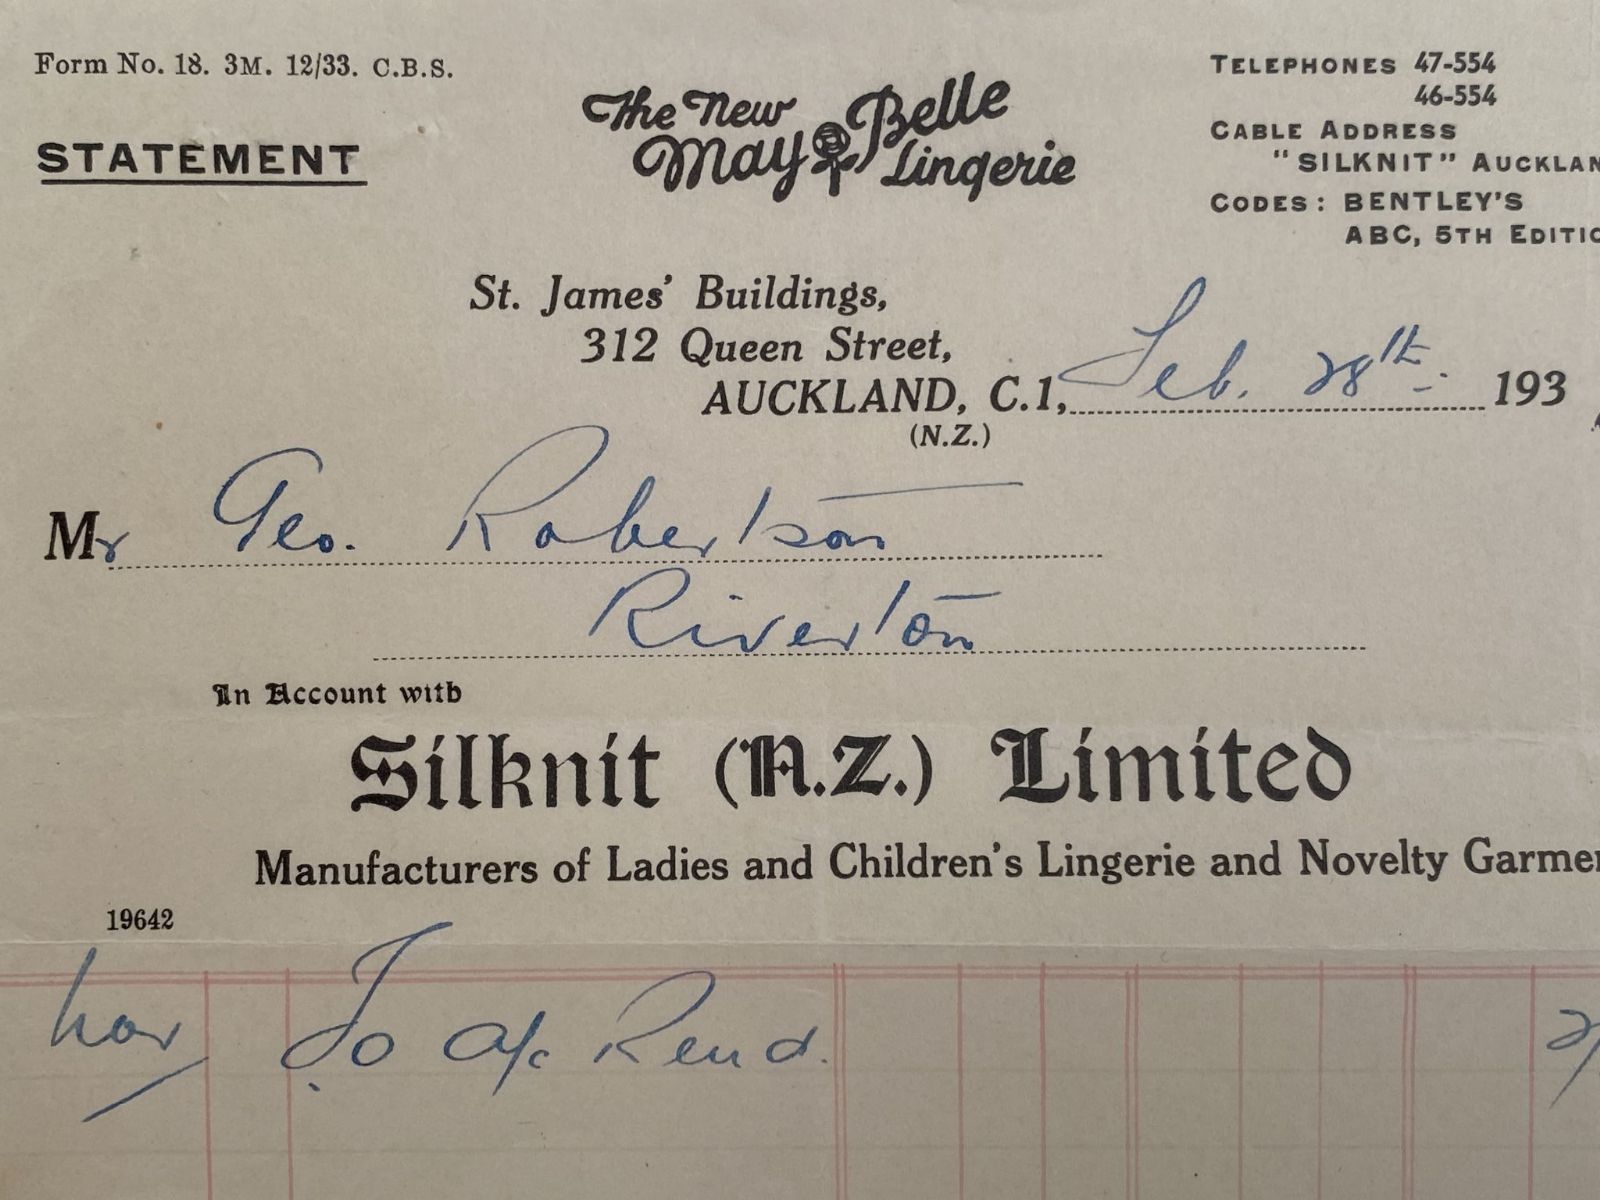 Form No. 18. 3M. 12/33. C.B.S.
STATEMENT
The New
May Belle
Lingerie
TELEPHONES 47-554
46-554
CABLE ADDRESS
"SILKNIT" AUCKLAN
CODES: BENTLEY'S
ABC, 5TH EDITIO
St. James' Buildings,
312 Queen Street,
AUCKLAND, C.1, Feb. 28th 193
(N.Z.)
Mr Geo. Robertson
Riverton
In Account with
Silknit (N.Z.) Limited
Manufacturers of Ladies and Children's Lingerie and Novelty Garmen
19642
Nov To A/c Rend.